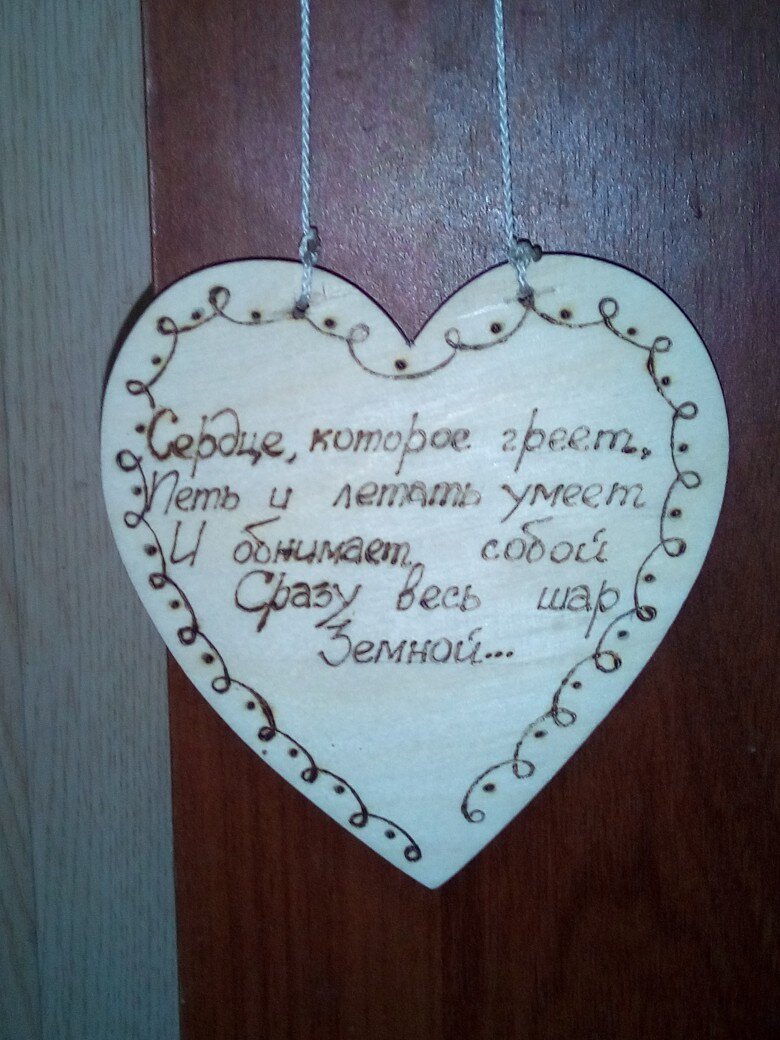 Сердце, которое греет,
Петь и летать умеет
И обнимает собой
Сразу весь шар
Земной...